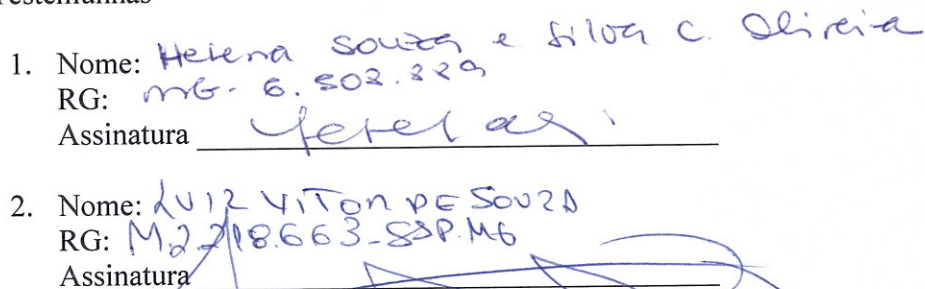 Testemunhas
1. Nome: Helena Souza e Silva C. Oliveira
RG: MG- 6.502.229
Assinatura
2. Nome: LUIZ VITOR DE SOUZA
RG: M2.218.663-SSP.MG
Assinatura